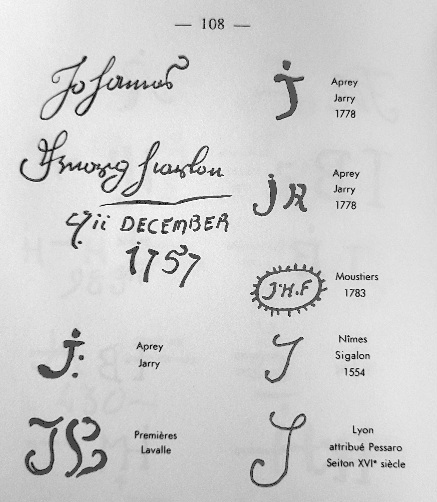 — 108 —
Johannes
DECEMBER
1757
J
Aprey
Jarry
1778
JR
Aprey
Jarry
1778
J.H.F
Moustiers
1783
J:
Aprey
Jarry
J
Nîmes
Sigalon
1554
Premières
Lavalle
J
Lyon
attribué Pessaro
Seiton XVIᵉ siècle